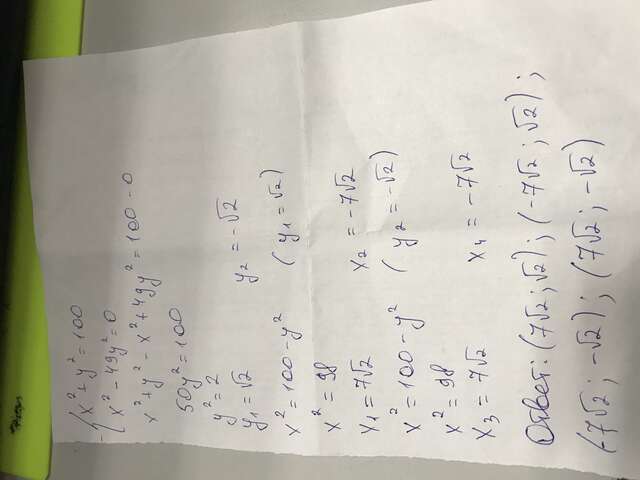 - { x² + y² = 100
x² - 49y² = 0
x² + y² - x² + 49y² = 100 - 0
50y² = 100
y² = 2
y₁ = √2 y₂ = -√2
x² = 100 - y² (y₁ = √2)
x² = 98
x₁ = 7√2 x₂ = -7√2
x² = 100 - y² (y₂ = -√2)
x² = 98
x₃ = 7√2 x₄ = -7√2
Ответ: (7√2; √2); (-7√2; √2);
(-7√2; -√2); (7√2; -√2)